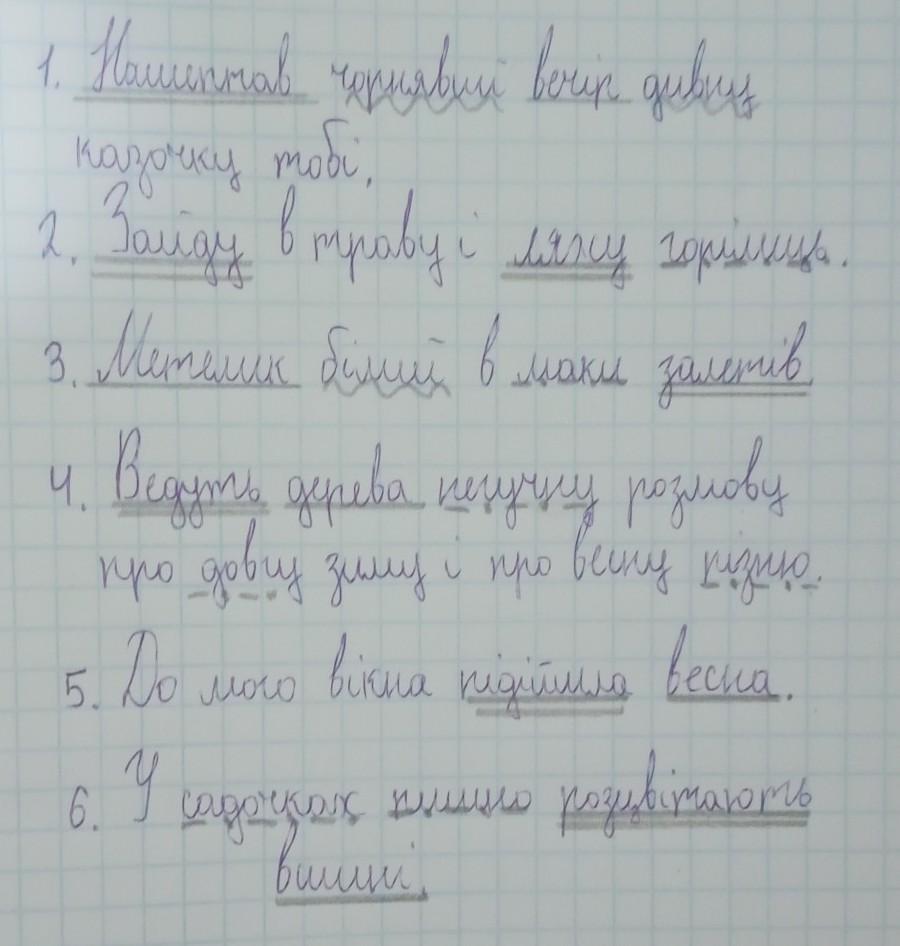 1. Нашептав чорнявий вечір дивну
казочку тобі.
2. Зайду в траву і ляжу горілиць.
3. Метелик білий в маки залетів
4. Ведуть дерева негучну розмову
про довгу зиму і про весну пізню.
5. До мого вікна підійшла весна.
6. У садочках пишно розцвітають
вишні.